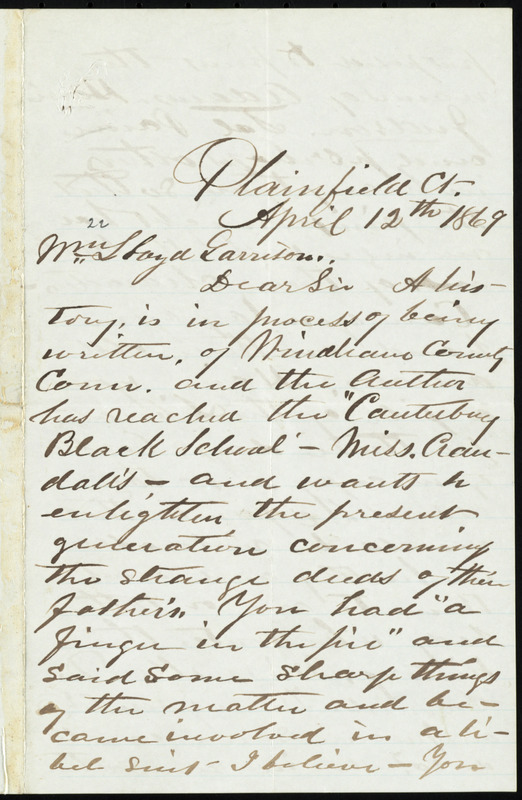 Plainfield Ct.
April 12th 1869
Wm Lloyd Garrison.
Dear Sir A his-
tory, is in process of being
written, of Windham County
Conn. and the Author
has reached the "Canterbury
Black School" – Miss. Cran-
dall's – and wants to
enlighten, the present
generation concerning
the strange deeds of their
father's. You had "a
finger in the pie" and
said some sharp things
of the matter and be-
came involved in a li-
bel suit I believe – You